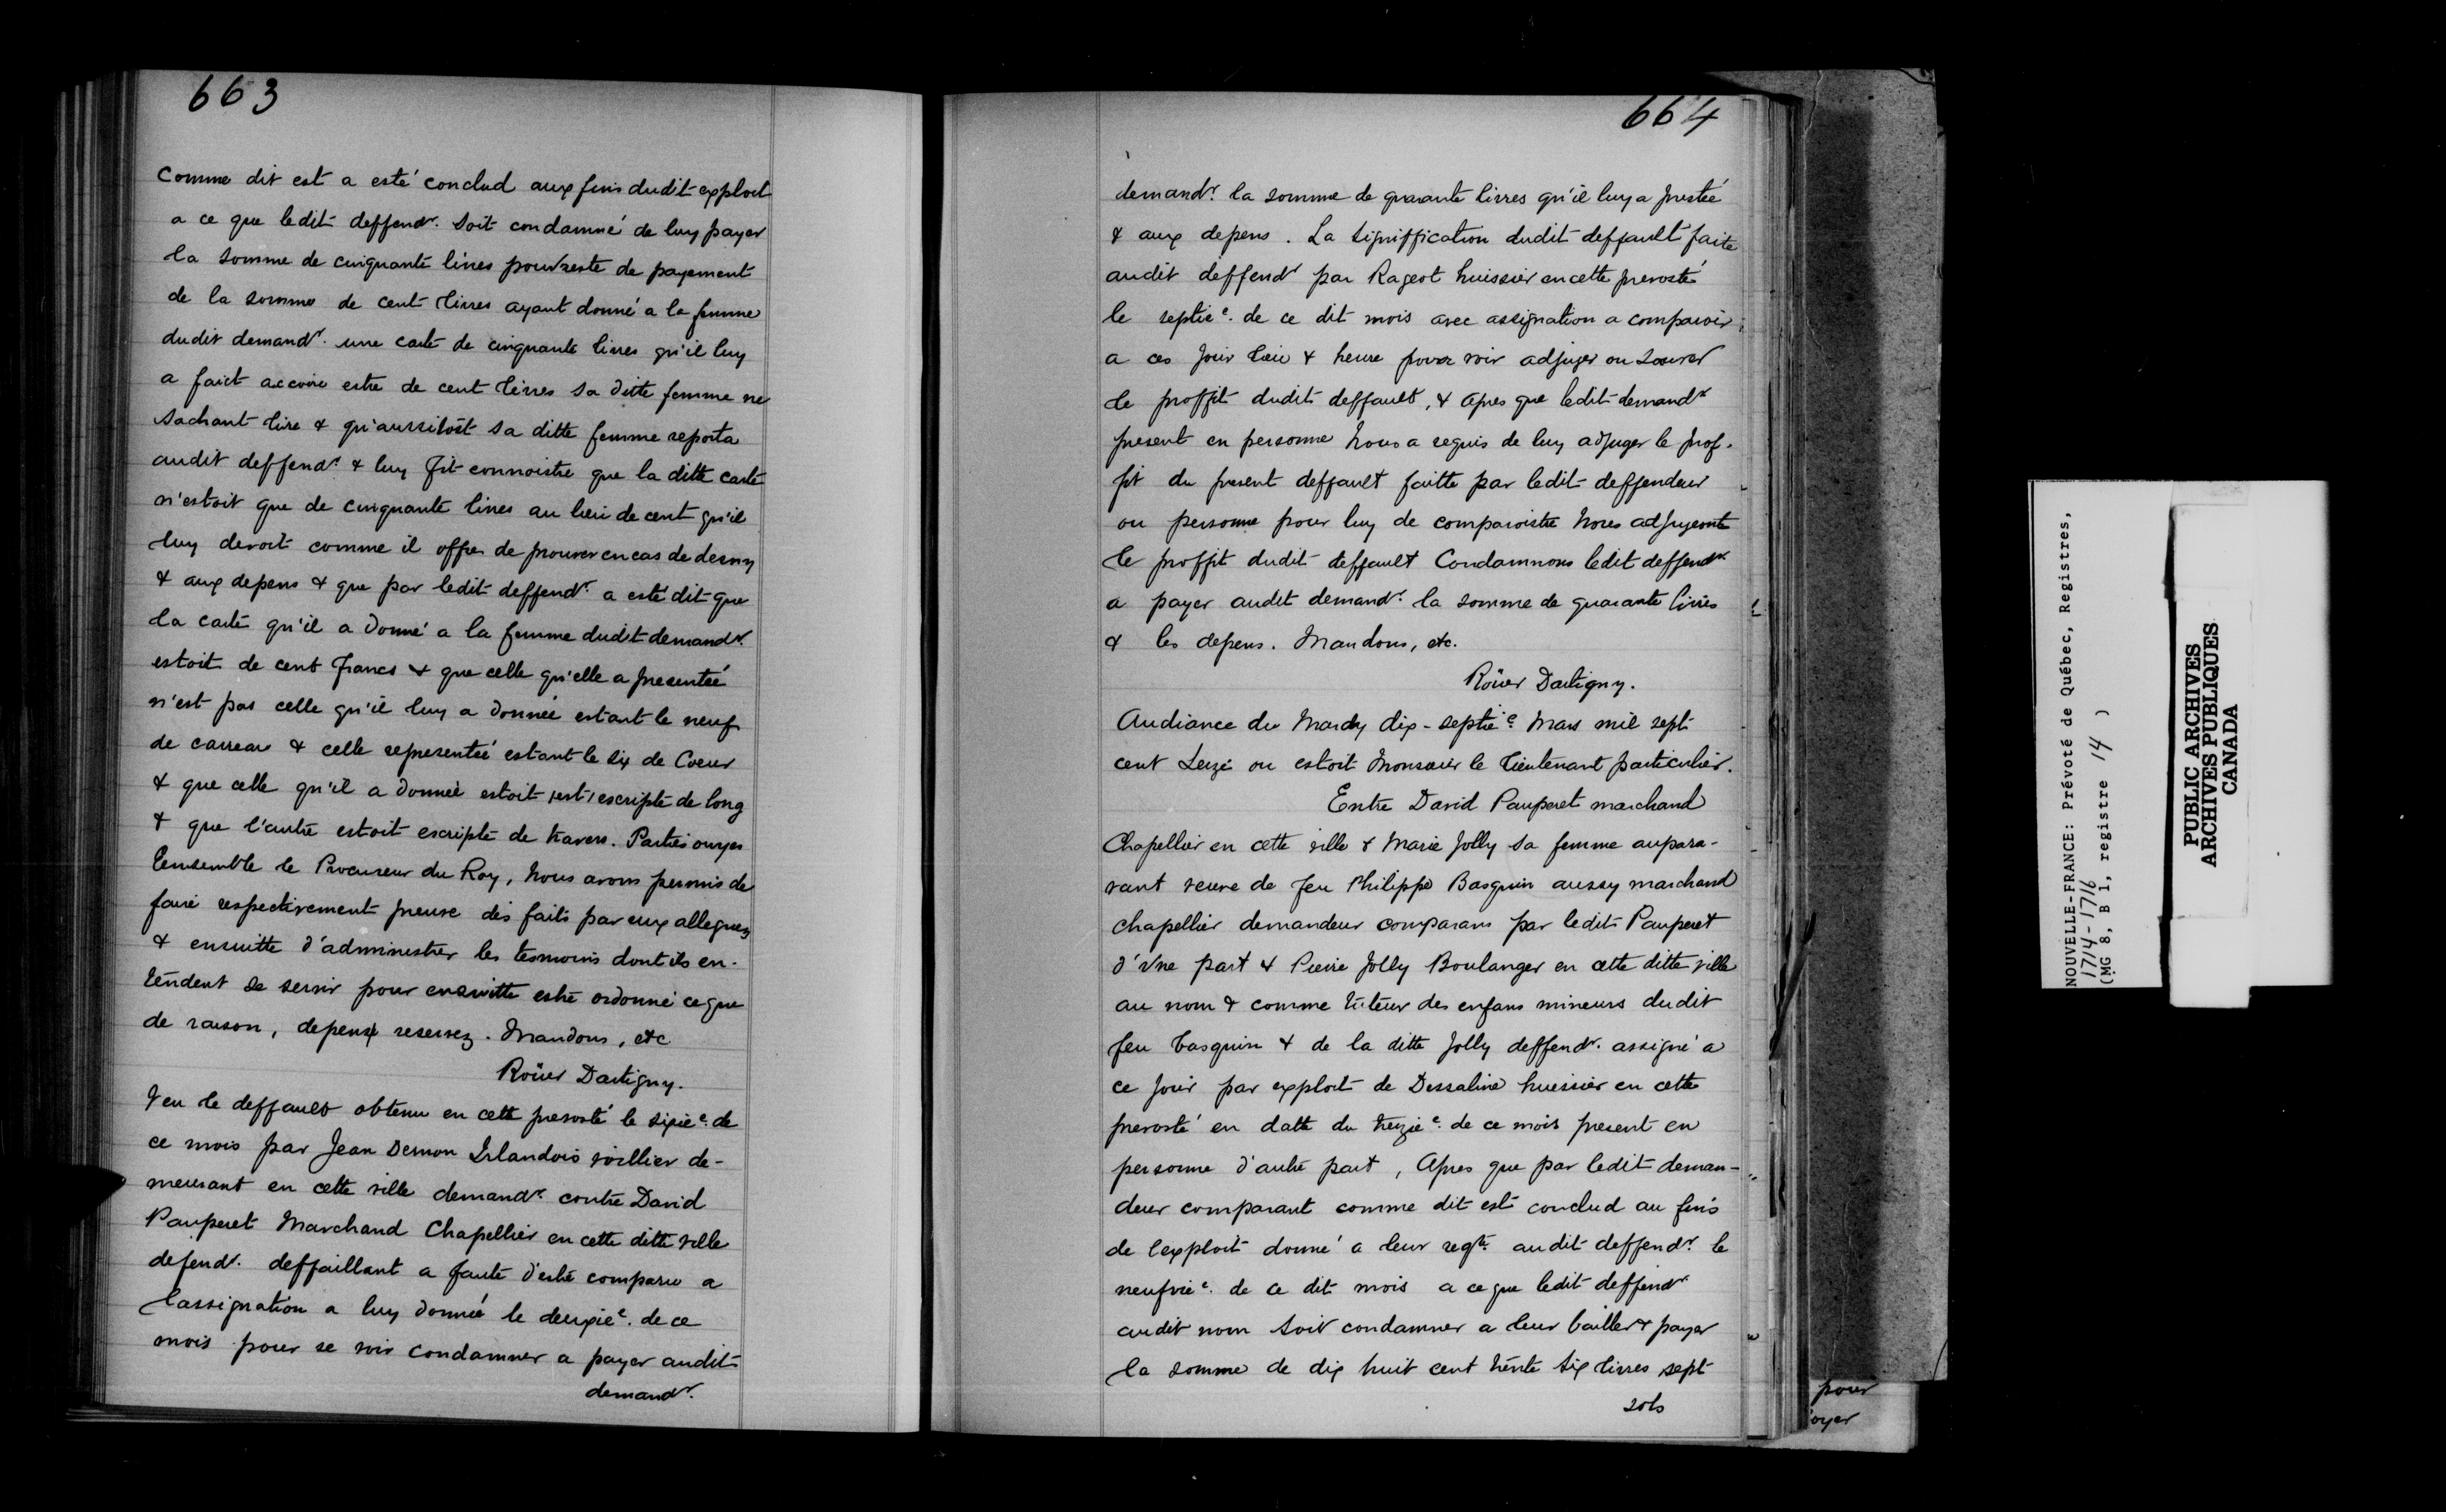 663
Comme dit est a esté conclud aux fins dudit exploit
a ce que ledit deffendr. soit condamné de luy payer
la somme de cinquante livres pour reste de payement
de la somme de cent livres ayant donné a la femme
dudit demandr. une carte de cinquante livres qu'il luy
a faict accoire estre de cent livres sa ditte femme ne
sachant lire & qu'aussitost sa ditte femme reporta
audit deffendr. & luy fit connoistre que la ditte carte
n'estoit que de cinquante livres au lieu de cent qu'il
luy devoit comme il offre de prouver en cas de desny
& aux depens & que par ledit deffendr. a esté dit que
la carte qu'il a donné a la femme dudit demandr.
estoit de cent francs & que celle qu'elle a presentée
n'est pas celle qu'il luy a donnée estant le neuf
de carreau & celle representée estant le six de Coeur
& que celle qu'il a donnée estoit (est) escripte de long
& que l'autre estoit escripte de travers. Parties ouyes
Ensemble le Procureur du Roy, Nous avons permis de
faire respectivement preuve des faits par eux alleguez
& ensuitte d'administrer les tesmoins dont ils en-
tendent se servir pour ensuitte estre ordonné ce que
de raison, depens reservez. Mandons, etc
Roüer Dartigny.
Veu le deffault obtenu en cette prevosté le sixie. de
ce mois par Jean Dernon Irlandois voillier de-
meurant en cette ville demandr. contre David
Pauperet Marchand Chapellier en cette ditte ville
defendr. deffaillant a faute d'estre comparu a
l'assignation a luy donnée le deuxie. de ce
mois pour se voir condamner a payer audit
demandr.
664
demandr. la somme de quarante livres qu'il luy a prestée
& aux depens. La signiffication dudit deffault faite
audit deffendr par Rageot huissier en cette prevosté
le septie. de ce dit mois avec assignation a comparoir
a ces jour lieu & heure pour voir adjuger ou sauver
le proffit dudit deffault, & apres que ledit demandr
present en personne Nous a requis de luy adjuger le prof-
fit du present deffault faitte par ledit deffendeur
ou personne pour luy de comparoistre Nous adjugeont
le proffit dudit deffault Condamnons ledit deffendr.
a payer audit demandr. la somme de quarante livres
& les depens. Mandons, etc.
Roüer Dartigny.
Audiance du Mardy dix-septie. Mars mil sept
cent seize ou estoit Monsieur le Lieutenant particulier.
Entre David Pauperet marchand
Chapellier en cette ville & Marie Jolly sa femme aupara-
vant veuve de feu Philippe Basquin aussy marchand
chapellier demandeur comparans par ledit Pauperet
d'Vne part & Pierre Jolly Boulanger en cette ditte ville
au nom & comme tuteur des enfans mineurs dudit
feu basquin & de la ditte Jolly deffendr. assigné a
ce jour par exploit de Dessaline huissier en cette
prevosté en datte du treizie. de ce mois present en
personne d'autre part, Apres que par ledit deman-
deur comparant comme dit est conclud au fins
de l'exploit donné a leur reqte. audit deffendr. le
neufvie. de ce dit mois a ce que ledit deffendr.
audit nom soit condamner a leur bailler & payer
la somme de dix huit cent trente six livres sept
sols
pour
oyer
NOUVELLE-FRANCE: Prévoté de Québec, Registres,
1714-1716
(MG 8, B 1, registre 14 )
PUBLIC ARCHIVES
ARCHIVES PUBLIQUES
CANADA